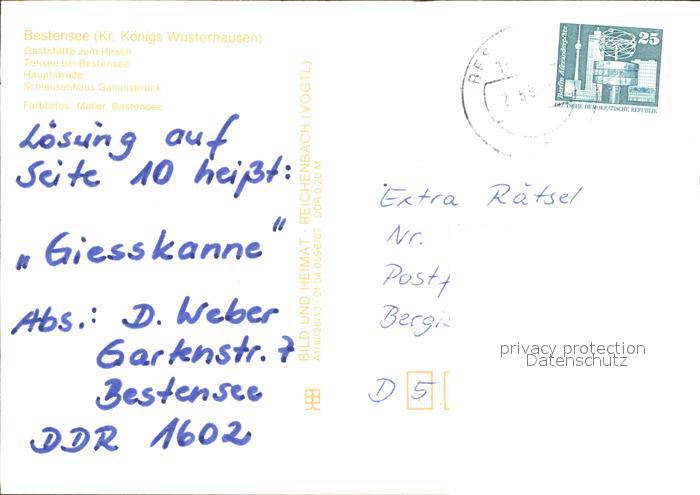 Bestensee (Kr. Königs Wusterhausen)
Gaststätte zum Hirsch
Tonsee bei Bestensee
Hauptstraße
Schleusenhaus Gallunsbrück
Farbfotos: Möller, Bestensee
Lösung auf
Seite 10 heißt:
„Giesskanne"
Abs.: D. Weber
Gartenstr. 7
Bestensee
DDR 1602
BILD UND HEIMAT · REICHENBACH (VOGTL)
A1/III/26/13 01 04 0596/07 DDR 0,20 M
BES
25
Berlin, Alexanderplatz
DEUTSCHE DEMOKRATISCHE REPUBLIK
Extra Rätsel
Nr.
Postf
Bergis
D 5
privacy protection
Datenschutz